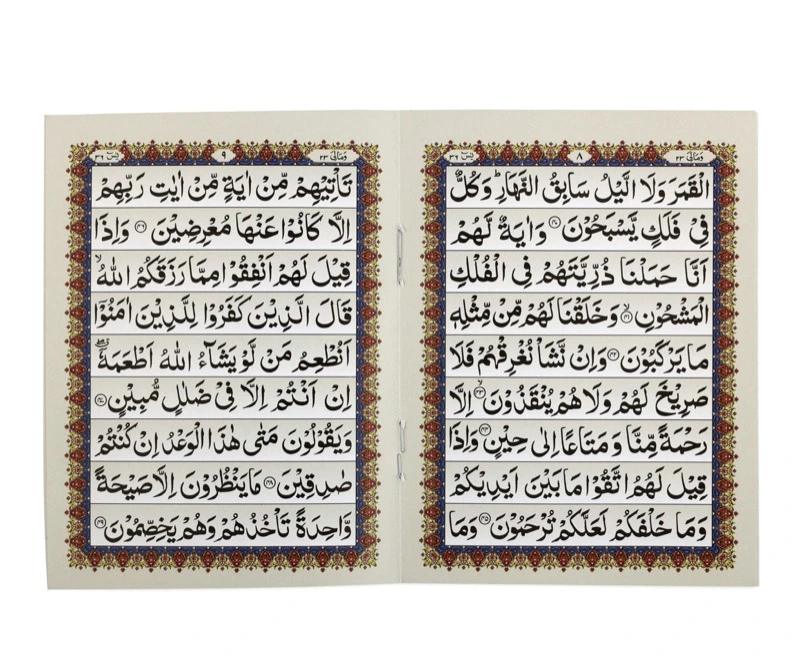 وَمَالِیَ ٢٣ ٨ یٰسٓ ٣٦
الْقَمَرَ وَلَا الَّیْلُ سَابِقُ النَّهَارِ ؕ وَ کُلٌّ
فِیْ فَلَکٍ یَّسْبَحُوْنَ ﴿۴۰﴾ وَ اٰیَةٌ لَّهُمْ
اَنَّا حَمَلْنَا ذُرِّیَّتَهُمْ فِی الْفُلْکِ
الْمَشْحُوْنِ ﴿ۙ۴۱﴾ وَ خَلَقْنَا لَهُمْ مِّنْ مِّثْلِهٖ
مَا یَرْکَبُوْنَ ﴿۴۲﴾ وَ اِنْ نَّشَاْ نُغْرِقْهُمْ فَلَا
صَرِیْخَ لَهُمْ وَلَا هُمْ یُنْقَذُوْنَ ﴿ۙ۴۳﴾ اِلَّا
رَحْمَةً مِّنَّا وَ مَتَاعًا اِلٰی حِیْنٍ ﴿۴۴﴾ وَ اِذَا
قِیْلَ لَهُمُ اتَّقُوْا مَا بَیْنَ اَیْدِیْکُمْ
وَ مَا خَلْفَکُمْ لَعَلَّکُمْ تُرْحَمُوْنَ ﴿۴۵﴾ وَ مَا
وَمَالِیَ ٢٣ ٩ یٰسٓ ٣٦
تَاْتِیْهِمْ مِّنْ اٰیَةٍ مِّنْ اٰیٰتِ رَبِّهِمْ
اِلَّا کَانُوْا عَنْهَا مُعْرِضِیْنَ ﴿۴۶﴾ وَ اِذَا
قِیْلَ لَهُمْ اَنْفِقُوْا مِمَّا رَزَقَکُمُ اللّٰهُ ۙ
قَالَ الَّذِیْنَ کَفَرُوْا لِلَّذِیْنَ اٰمَنُوْۤا
اَنُطْعِمُ مَنْ لَّوْ یَشَآءُ اللّٰهُ اَطْعَمَهٗۤ ۖۗ
اِنْ اَنْتُمْ اِلَّا فِیْ ضَلٰلٍ مُّبِیْنٍ ﴿۴۷﴾
وَ یَقُوْلُوْنَ مَتٰی هٰذَا الْوَعْدُ اِنْ کُنْتُمْ
صٰدِقِیْنَ ﴿۴۸﴾ مَا یَنْظُرُوْنَ اِلَّا صَیْحَةً
وَّاحِدَةً تَاْخُذُهُمْ وَهُمْ یَخِصِّمُوْنَ ﴿۴۹﴾